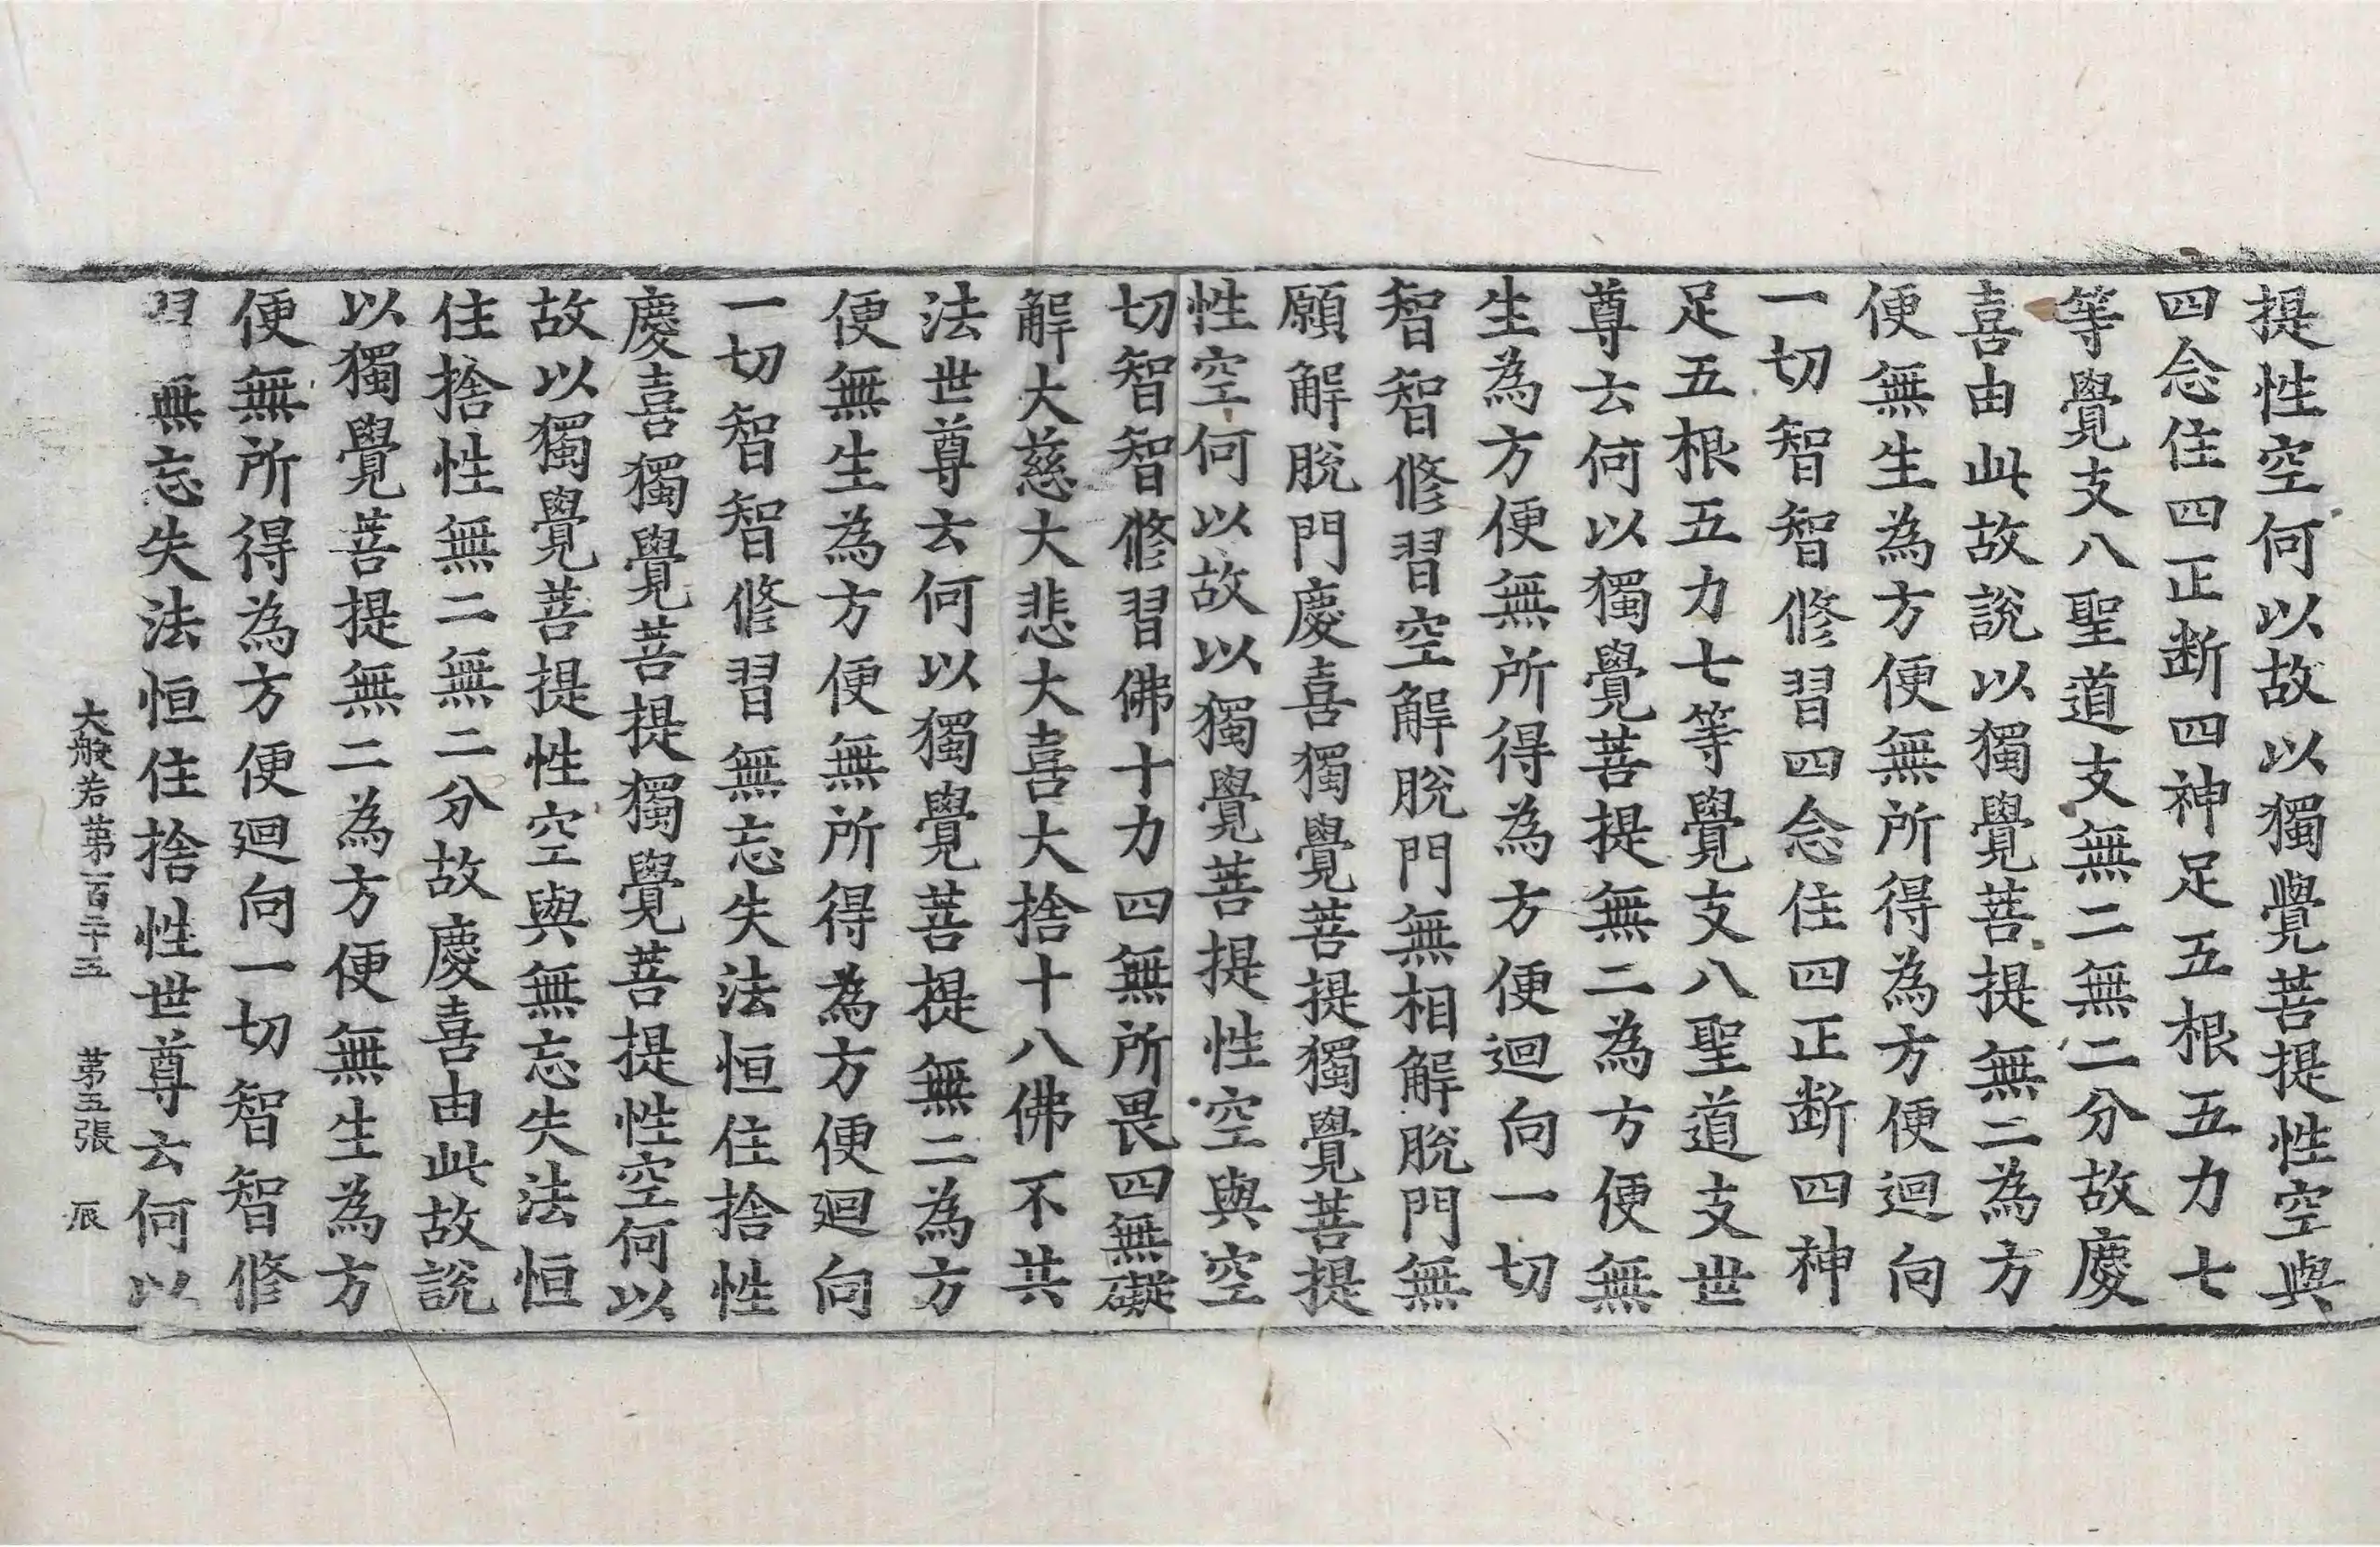 提性空何以故以獨覺菩提性空與
四念住四正断四神足五根五力七
等覺支八聖道支無二無二分故慶
喜由此故說以獨覺菩提無二為方
便無生為方便無所得為方便迴向
一切智智修習四念住四正断四神
足五根五力七等覺支八聖道支世
尊云何以獨覺菩提無二為方便無
生為方便無所得為方便迴向一切
智智修習空解脫門無相解脫門無
願解脫門慶喜獨覺菩提獨覺菩提
性空何以故以獨覺菩提性空與空
切智智修習佛十力四無所畏四無礙
解大慈大悲大喜大捨十八佛不共
法世尊云何以獨覺菩提無二為方
便無生為方便無所得為方便迴向
一切智智修習無忘失法恒住捨性
慶喜獨覺菩提獨覺菩提性空何以
故以獨覺菩提性空與無忘失法恒
住捨性無二無二分故慶喜由此故說
以獨覺菩提無二為方便無生為方
便無所得為方便迴向一切智智修
習無忘失法恒住捨性世尊云何以
大般若第一百二十五 第五張 辰